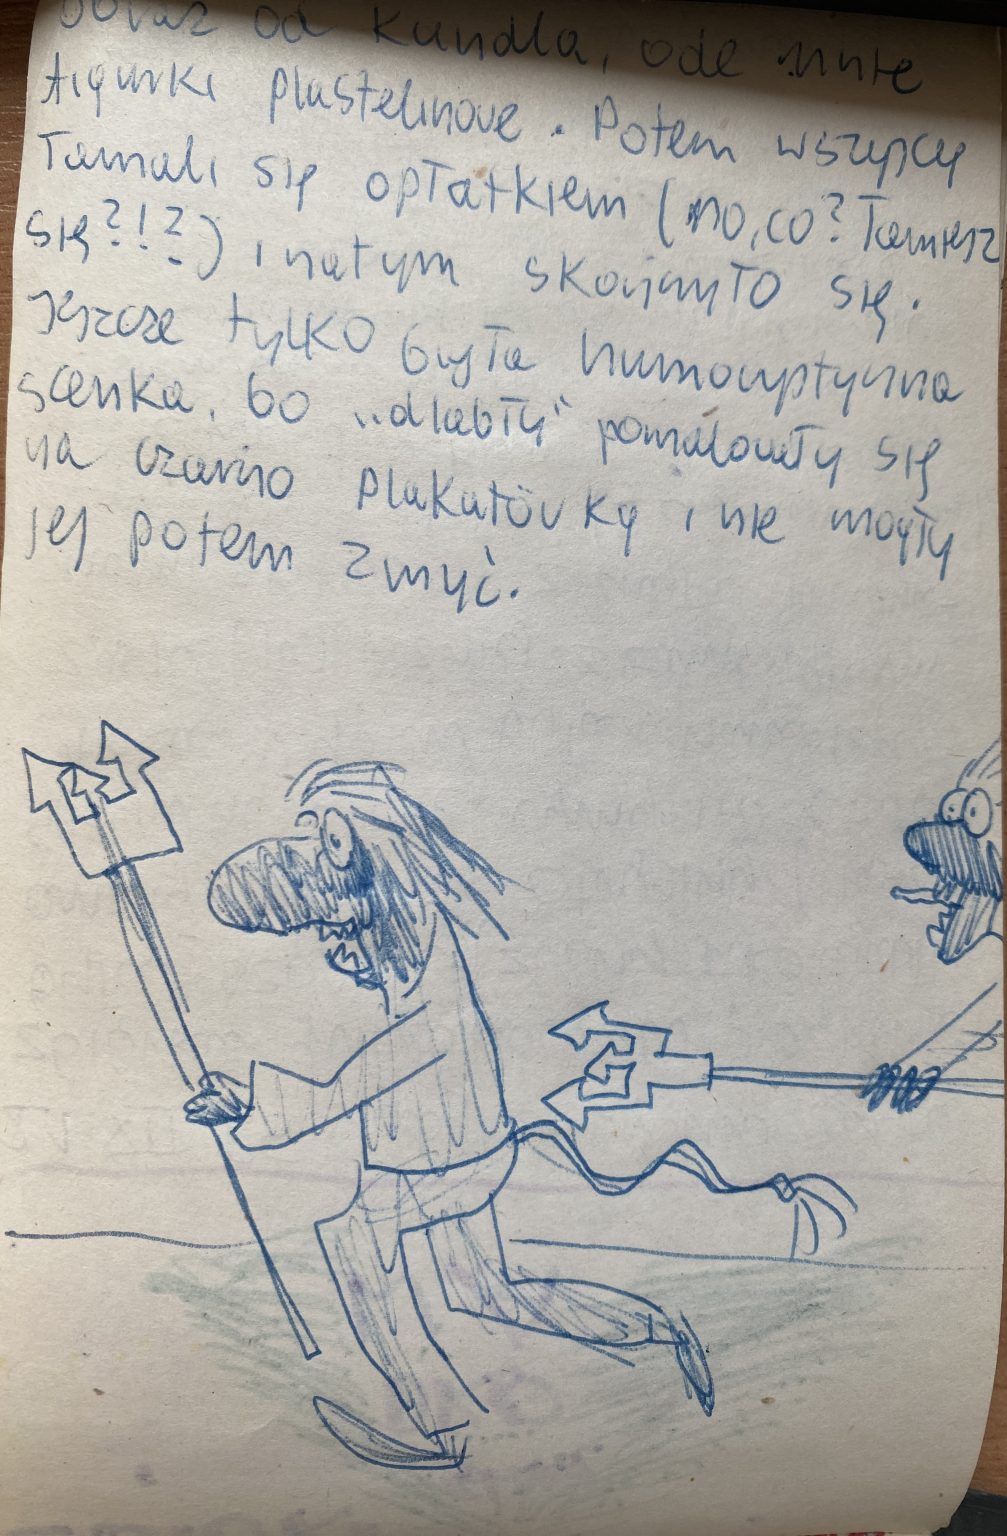 obraz od Kundla, ode mnie
figurki plastelinowe. Potem wszyscy
łamali się opłatkiem (no, co? Łamiesz
się?!?) i na tym skończyło się.
Jeszcze tylko była humorystyczna
scenka, bo „diabły” pomalowały się
na czarno plakatówką i nie mogły
jej potem zmyć.